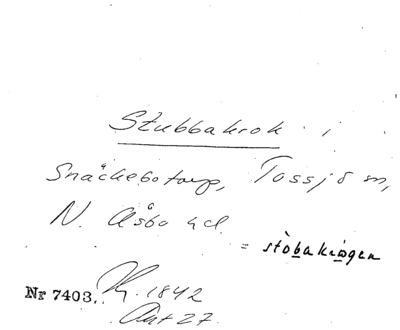 Stubbakrok i
Snäckebotorp, Tossjö m,
N. Åsbo hd.
= stòbakrògen
Nr 7403. 1842
Akt 27.